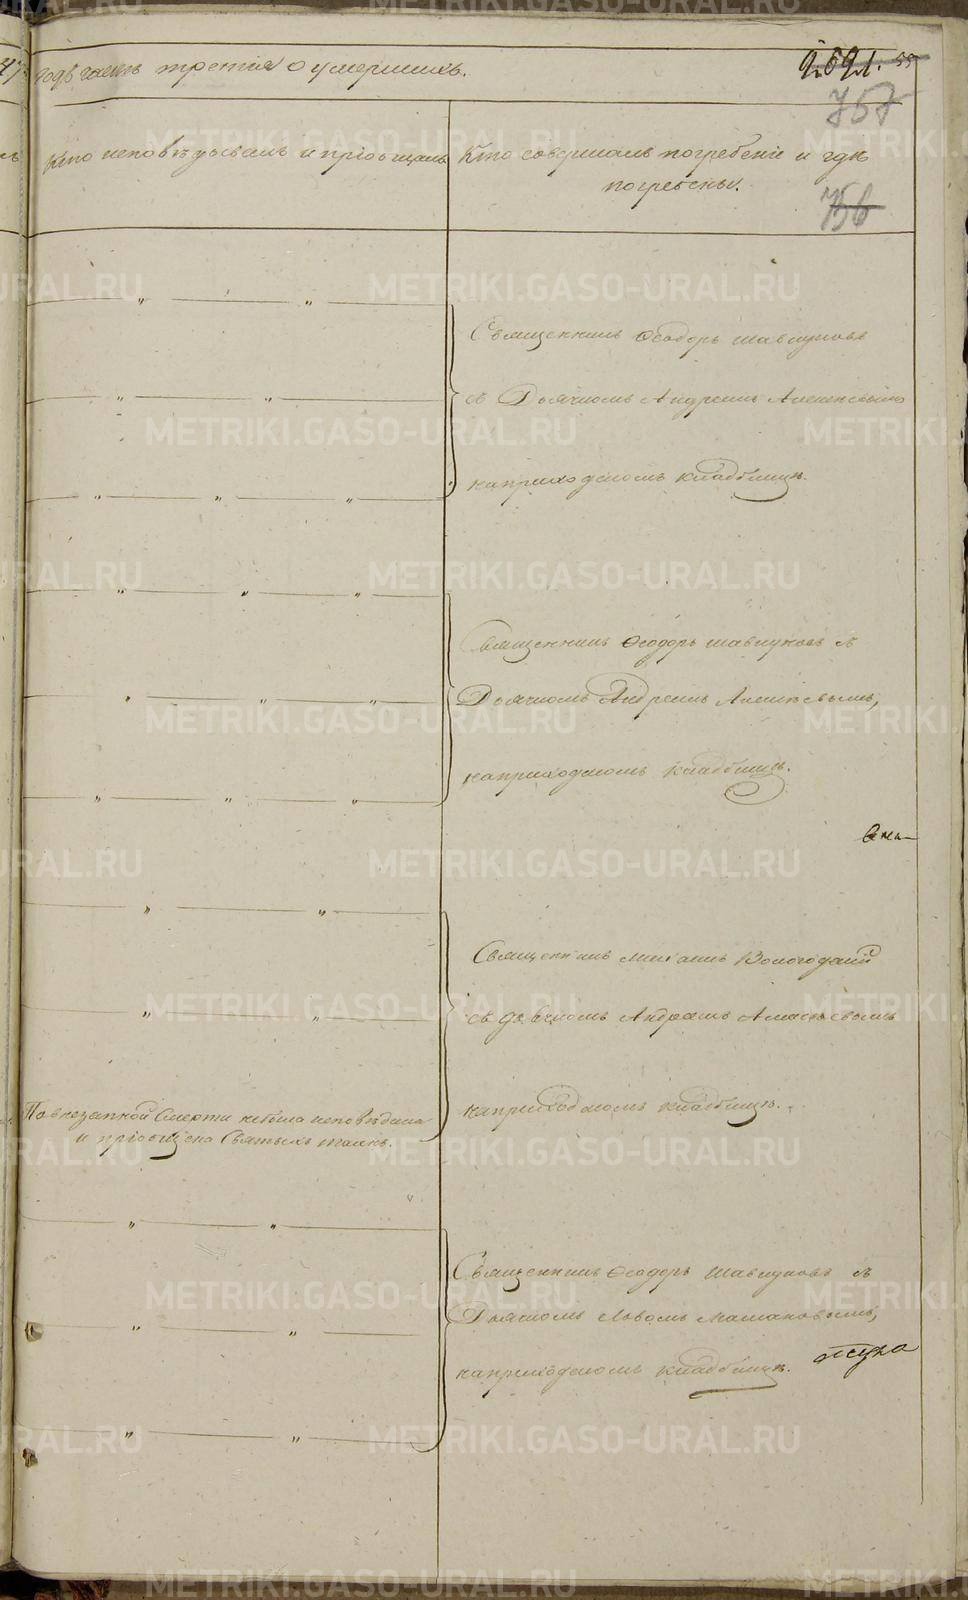 47
годъ часть третія о умершихъ.
757
Кто исповѣдывалъ и пріобщалъ
Кто совершалъ погребеніе и гдѣ
погребены.
756
Священникъ Ѳеодоръ Шавкуновъ
съ Дьячкомъ Андреемъ Алексѣевымъ
на приходскомъ кладбищѣ.
Священникъ Ѳеодоръ Шавкуновъ съ
Дьячкомъ Андреемъ Алексѣевымъ,
на приходскомъ кладбищѣ.
Священникъ Михаилъ Вологодскій
съ дьячкомъ Андреемъ Алексѣевымъ
на приходскомъ кладбищѣ.
По внезапной смерти не была исповѣдана
и пріобщена Святыхъ таинъ.
Священникъ Ѳеодоръ Шавкуновъ съ
Дьячкомъ
на приходскомъ кладбищѣ.
METRIKI.GASO-URAL.RU